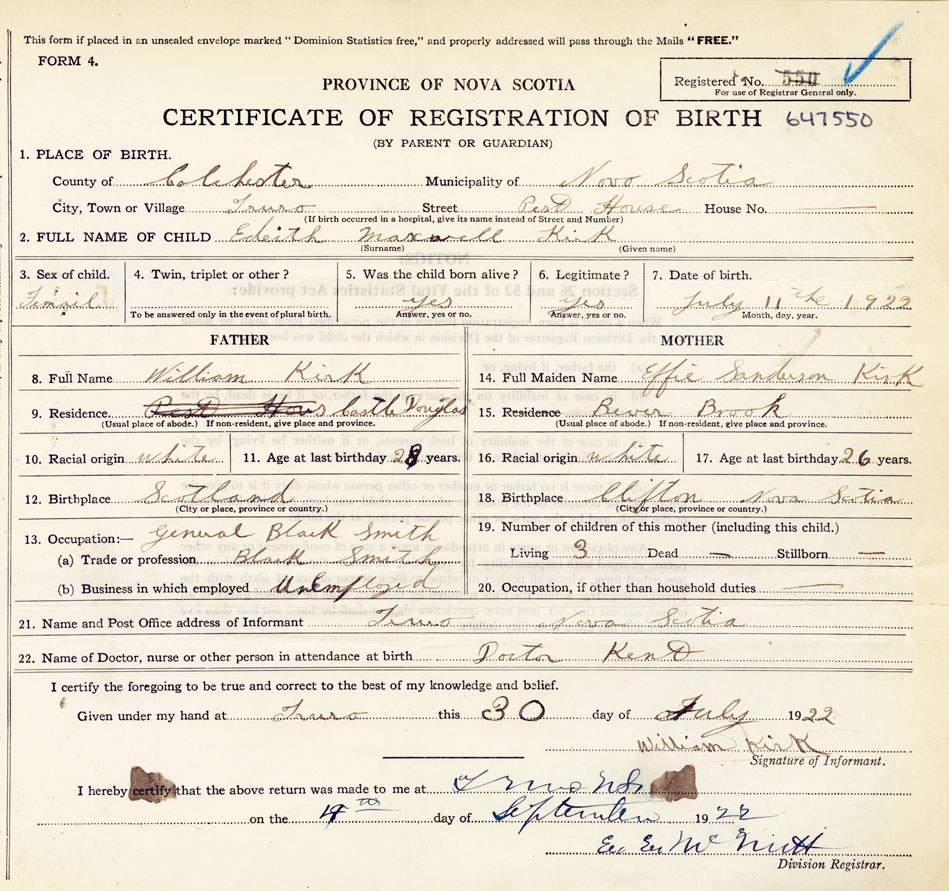 This form if placed in an unsealed envelope marked "Dominion Statistics free," and properly addressed will pass through the Mails "FREE."
FORM 4.
Registered No. 550
For use of Registrar General only.
PROVINCE OF NOVA SCOTIA
CERTIFICATE OF REGISTRATION OF BIRTH 647550
(BY PARENT OR GUARDIAN)
1. PLACE OF BIRTH.
County of Colchester Municipality of Novo Scotia
City, Town or Village Truro Street Pest House House No. —
(If birth occurred in a hospital, give its name instead of Street and Number)
2. FULL NAME OF CHILD Edeith Maxwell Kirk
(Surname) (Given name)
3. Sex of child. 4. Twin, triplet or other? 5. Was the child born alive? 6. Legitimate? 7. Date of birth.
Femail yes yes July 11 the 1922
To be answered only in the event of plural birth. Answer, yes or no. Answer, yes or no. Month, day, year.
FATHER MOTHER
8. Full Name William Kirk 14. Full Maiden Name Effie Sanderson Kirk
9. Residence Pest Hous Castle Douglas 15. Residence Bever Brook
(Usual place of abode.) If non-resident, give place and province. (Usual place of abode.) If non-resident, give place and province.
10. Racial origin white 11. Age at last birthday 28 years. 16. Racial origin white 17. Age at last birthday 26 years.
12. Birthplace Scotland 18. Birthplace Clifton Nova Scotia
(City or place, province or country.) (City or place, province or country.)
13. Occupation:— General Black Smith 19. Number of children of this mother (including this child.)
(a) Trade or profession Black Smith Living 3 Dead — Stillborn —
(b) Business in which employed UnEmployed 20. Occupation, if other than household duties —
21. Name and Post Office address of Informant Truro Nova Scotia
22. Name of Doctor, nurse or other person in attendance at birth Doctor Kent
I certify the foregoing to be true and correct to the best of my knowledge and belief.
Given under my hand at Truro this 30 day of July 1922
William Kirk
Signature of Informant.
I hereby certify that the above return was made to me at Truro NS.
on the 4th day of September 1922
Division Registrar.